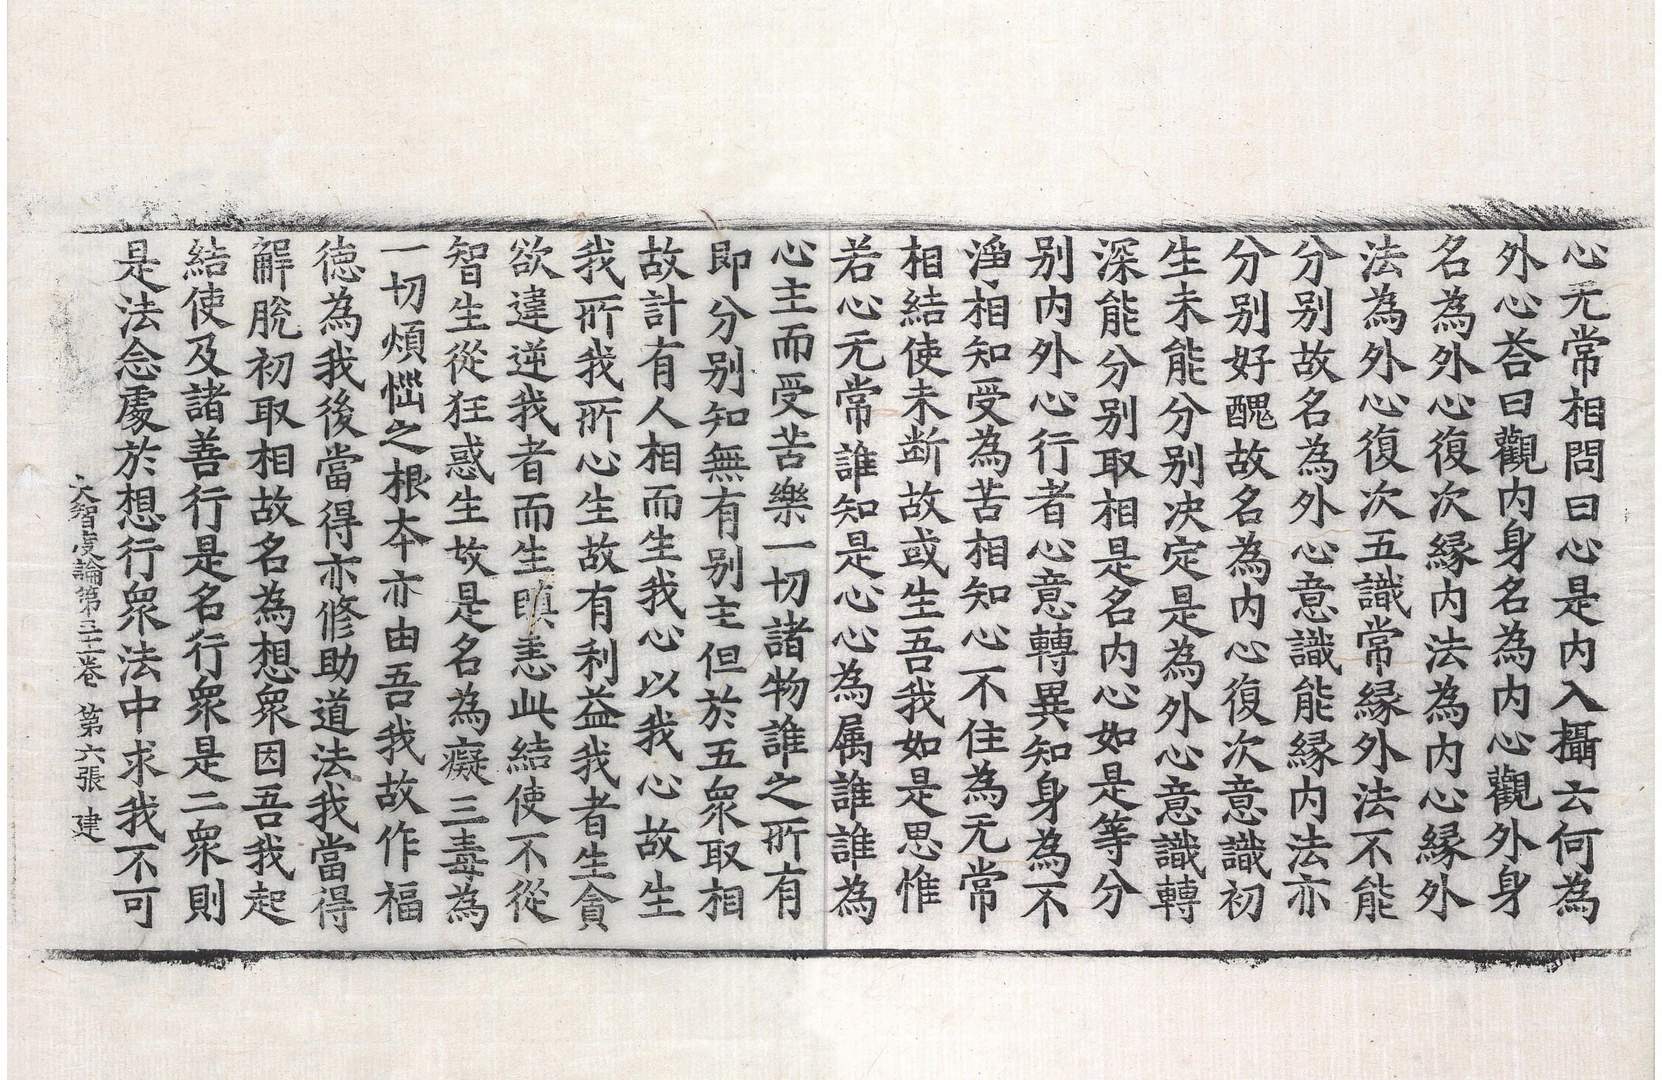 心无常相問曰心是内入攝云何為
外心荅曰觀内身名為内心觀外身
名為外心復次緣内法為内心緣外
法為外心復次五識常緣外法不能
分别故名為外心意識能緣内法亦
分别好醜故名為内心復次意識初
生未能分别决定是為外心意識轉
深能分别取相是名内心如是等分
别内外心行者心意轉異知身為不
淨相知受為苦相知心不住為无常
相結使未断故或生吾我如是思惟
若心无常誰知是心心為屬誰誰為
心主而受苦樂一切諸物誰之所有
即分别知無有别主但於五衆取相
故計有人相而生我心以我心故生
我所我我所心生故有利益我者生貪
欲違逆我者而生瞋恚此結使不從
智生從狂惑生故是名為癡三毒為
一切煩惱之根本亦由吾我故作福
德為我後當得亦修助道法我當得
解脫初取相故名為想衆因吾我起
結使及諸善行是名行衆是二衆則
是法念處於想行衆法中求我不可
大智度論第三十一卷 第六張 建